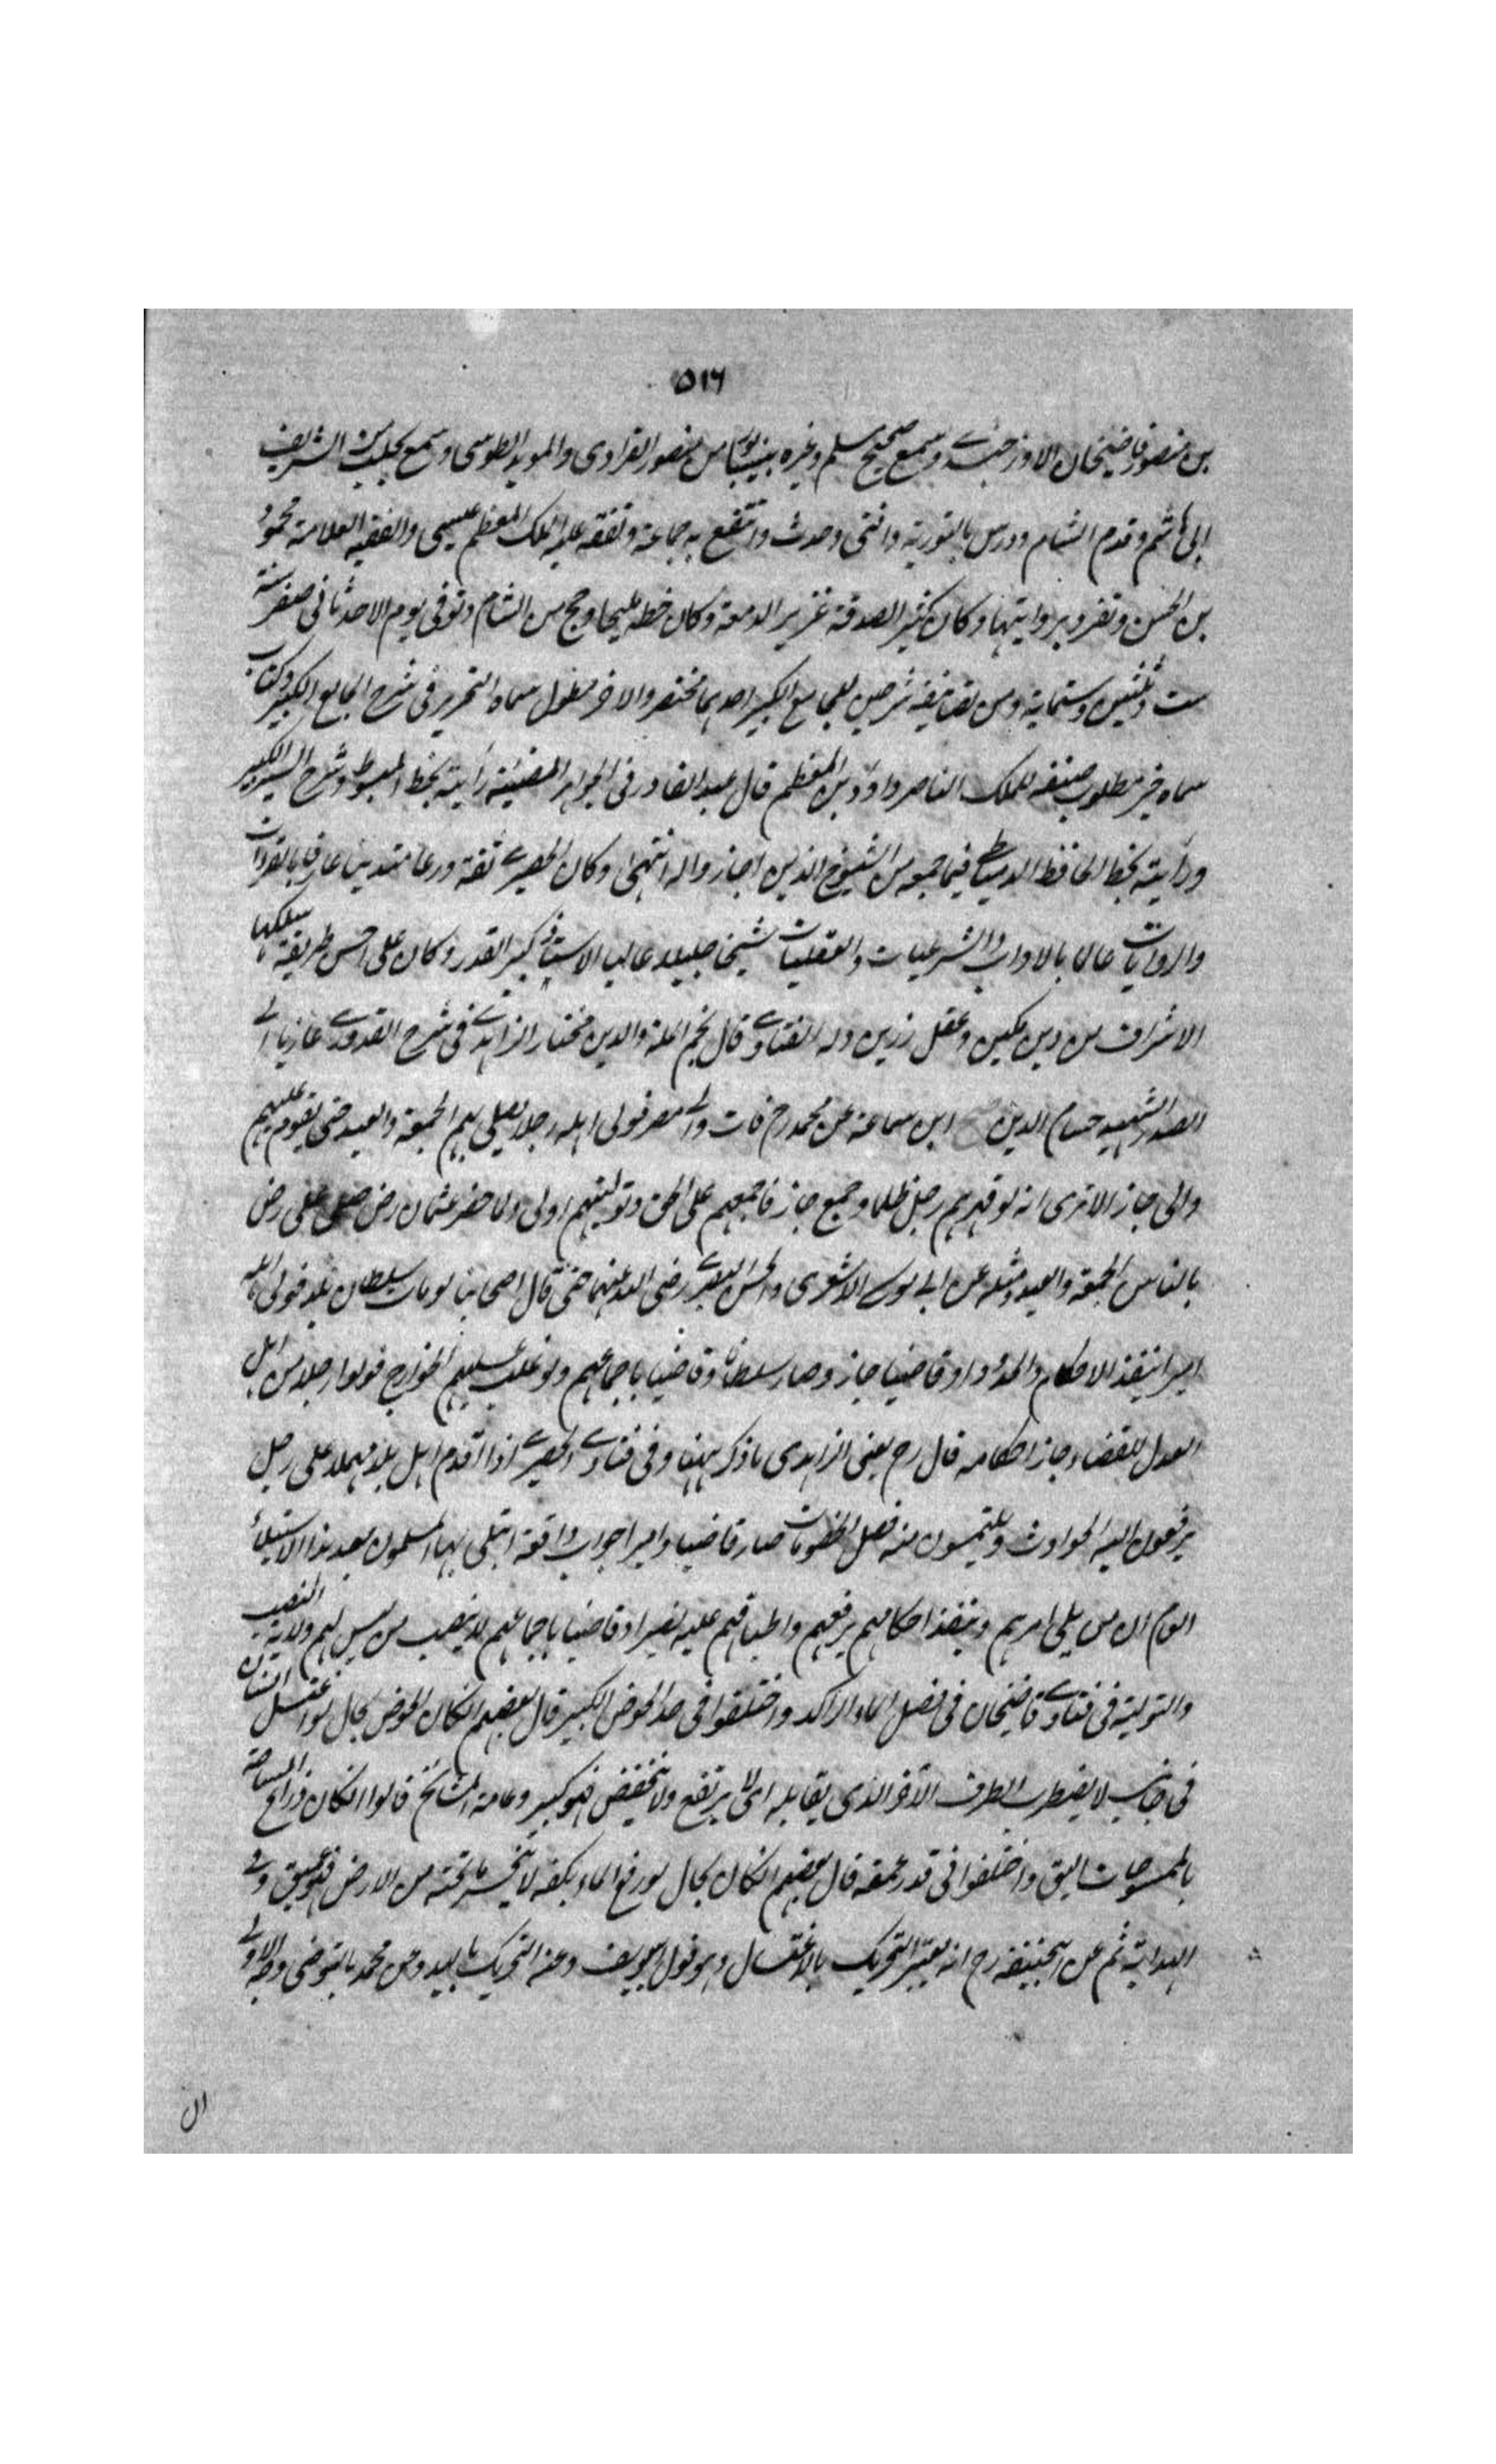 ٥١٦
بن منصور قاضيخان الاوزجندے وسمع صحيح مسلم وغيره بنيسابور من منصور الفراوى والمويد الطوسى وسمع بحلب من الشريف
ابى هاشم وقدم الشام ودرس بالنورية وافتى وحدث وانتفع به جماعة وتفقه عليه الملك المعظم عيسى والفقيه العلامة محمود
بن الحسن وتفرد بروايتها وكان كثير الصدقة غزير الدمعة وكان خطه مليحا وحج من الشام وتوفى يوم الاحد ثانى صفر سنة
ست وثلثين وستماية ومن تصانيفه شرحين للجامع الكبير احدهما مختصر والاخر مطول سماه التحرير فى شرح الجامع الكبير وكتاب
سماه خير مطلوب صنفه للملك الناصر داوٗد بن المعظم قال عبد القادر فى الجواهر المضيئة رأيته بخط المبسوط وشرح السير الكبير
ورأيته بخط الحافظ الدمياطے فيما جمعه من الشيوخ الذين اجازوا له انتهى وكان الحصيرے ثقة ورعا متدينا عارفا بالقراءات
والروايات عالما بالاداب والشرعيات والعقليات شيخا جليلا عالى الاسناد كبير القدر وكان على احسن طريقة سلكها
الاشراف من دين مكين وعقل رزين وله الفتاوے قال نجم الملة والدين مختار الزاهدے فى شرح القدورے عازيا الے
الصدر الشهيد حسام الدين ابن سماعة عن محمد رح مات والے مصر فولى اهله رجلا يصلى بهم الجمعة والعيد حتى يقوم عليهم
والى جاز الا ترى انه لو قهرهم رجل ظلما وجمع جاز فاجمعهم على الحق وتوليتهم اولى ولما حضر عثمان رض صلى على رض
بالناس الجمعة والعيد ومثله عن ابے موسے الاشعرى والحسن البصرے رضى الله عنهما حتى قال اصحابنا لو مات سلطان بلد فولى اهله
اميرا ينفذ الاحكام والحدود او قاضيا جاز وصار سلطانا وقاضيا باجماعهم ولو غلب عليهم الخوارج فولوا رجلا من اهل
العدل للقضاء جاز احكامه قال رح يعنى الزاهدى ما ذكر ههنا وفى فتاوے الحصيرے اذا اقدم اهل بلد مهملة على رجل
يرفعون اليه الحوادث ويلتمسون منه فصل الخصومات صار قاضيا واميرا جواب واقعة ابتلى بها المسلمون بعد هذا الاستيلاء
العام ان من يلى امرهم وينفذ احكامهم برفعهم واطباقهم عليه يصير او قاضيا باجماعهم لا ينصب من ليس لهم ولاية النصب
والتولية فى فتاوے قاضيخان فى فصل الماء الراكد واختلفوا فى حد الحوض الكبير قال بعضهم انكان الحوض بحال لو اغتسل انسان
فى جانب لا يضطرب الطرف الآخر الذى يقابله اى لا يرتفع ولا ينخفض فهو كبير وعامة المشائخ قالوا انكان ذراع المساحة
بالممسوحات اليق واختلفوا فى قدر عمقه قال بعضهم انكان بحال لو رفع الماء بكفه لا ينحسر ما تحته من الارض فهو عميق وفے
الهداية ثم عن ابيحنيفة رح انه يعتبر التحريك بالاغتسال وهو قول ابيوسف وعنه التحريك باليد وعن محمد بالتوضى وجه الاولے
ان